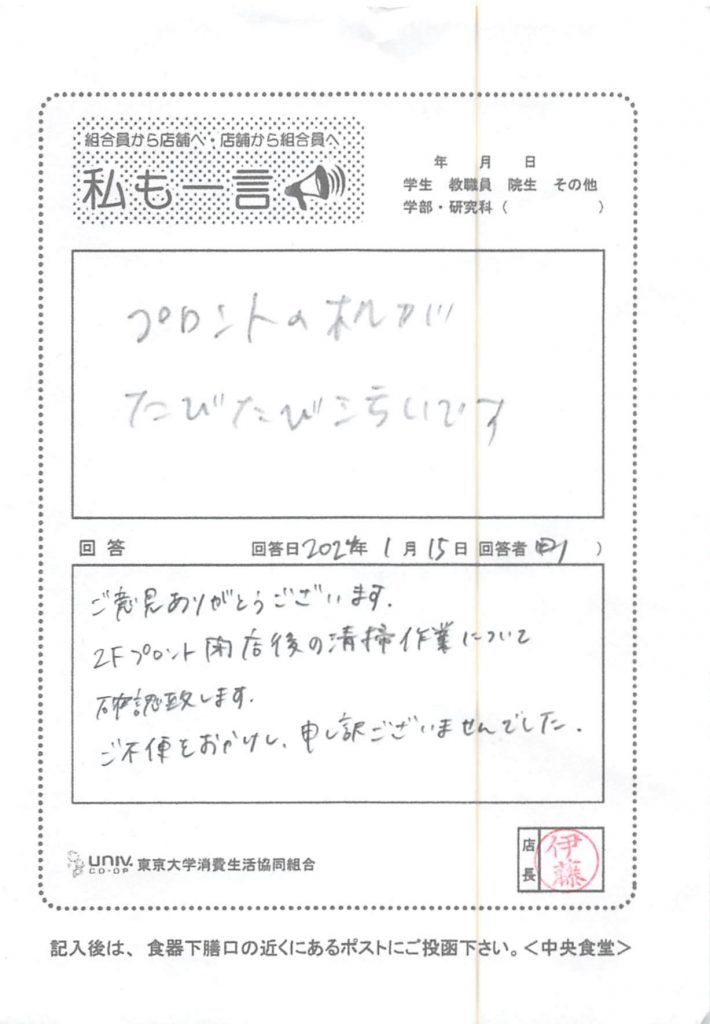 組合員から店舗へ・店舗から組合員へ
私も一言
年 月 日
学生 教職員 院生 その他
学部・研究科( )
プロントの机が
たびたびこ汚いです
回答 回答日2024年 1月15日 回答者 )
ご意見ありがとうございます.
2Fプロント閉店後の清掃作業について
確認致します.
ご不便をおかけし、申し訳ございませんでした.
UNIV. CO-OP 東京大学消費生活協同組合
店長 伊藤
記入後は、食器下膳口の近くにあるポストにご投函下さい。<中央食堂>